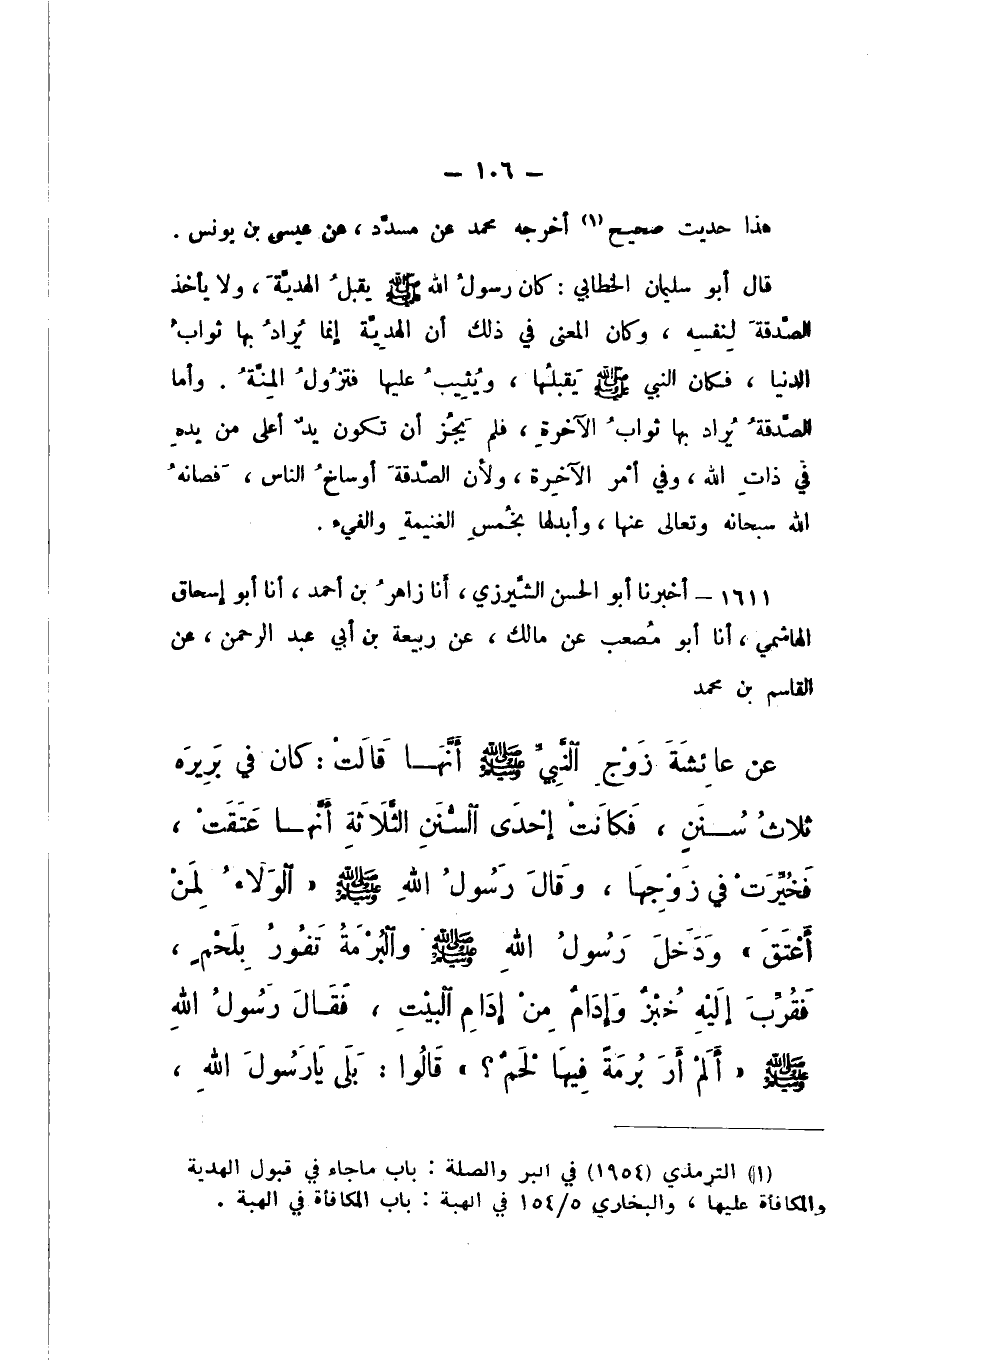 – ١٠٦ –
هذا حديث صحيح (١) أخرجه محمد عن مسدَّد ، عن عيسى بن يونس .
قال أبو سليمان الخطابي : كان رسولُ الله ﷺ يقبلُ الهديَّةَ ، ولا يأخذ
الصَّدقةَ لِنفسِه ، وكان المعنى في ذلك أن الهديِّة إنما يُرادُ بها ثوابُ
الدنيا ، فكان النبي ﷺ يَقبلُها ، ويُثيبُ عليها فتزُولُ المِنَّةُ . وأما
الصَّدقةُ يُراد بها ثوابُ الآخرةِ ، فلم يَجُز أن تكون يدٌ أعلى من يدهِ
في ذاتِ الله ، وفي أمر الآخرة ، ولأن الصَّدقةَ أوساخُ الناس ، فَصانهُ
الله سبحانه وتعالى عنها ، وأبدلها بخُمسِ الغنيمةِ والفيء .
١٦١١ – أخبرنا أبو الحسن الشِّيرزي ، أنا زاهرُ بن أحمد ، أنا أبو إسحاق
الهاشمي ، أنا أبو مُصعب عن مالك ، عن ربيعة بن أبي عبد الرحمن ، عن
القاسم بن محمد
عن عائِشَةَ زَوْجِ ٱلنَّبِيِّ ﷺ أَنَّهَا قَالَتْ : كان في بَرِيرَه
ثلاثُ سُنَنٍ ، فَكاَنَتْ إِحْدَى ٱلسُّنَنِ الثَّلَاثَةِ أَنَّها عَتَقَتْ ،
فَخُيِّرَتْ في زَوْجِهَا ، وقَالَ رَسُولُ اللهِ ﷺ « ٱلْوَلَاءُ لِمَنْ
أَعْتَقَ » وَدَخَلَ رَسُولُ اللهِ ﷺ وٱلْبُرْمَةُ تَفُورُ بِلَحْمٍ ،
فَقُرِّبَ إِلَيْهِ خُبْزٌ وَإِدَامٌ مِنْ إِدَامِ ٱلْبَيْتِ ، فَقَالَ رَسُولُ اللهِ
ﷺ « أَلَمْ أَرَ بُرمَةً فِيهَا لَحْمٌ ؟ » قَالُوا : بَلَى يَارَسُولَ اللهِ ،
(١) الترمذي (١٩٥٤) في البر والصلة : باب ماجاء في قبول الهدية
والمكافأة عليها ، والبخاري ١٥٤/٥ في الهبة : باب المكافأة في الهبة .